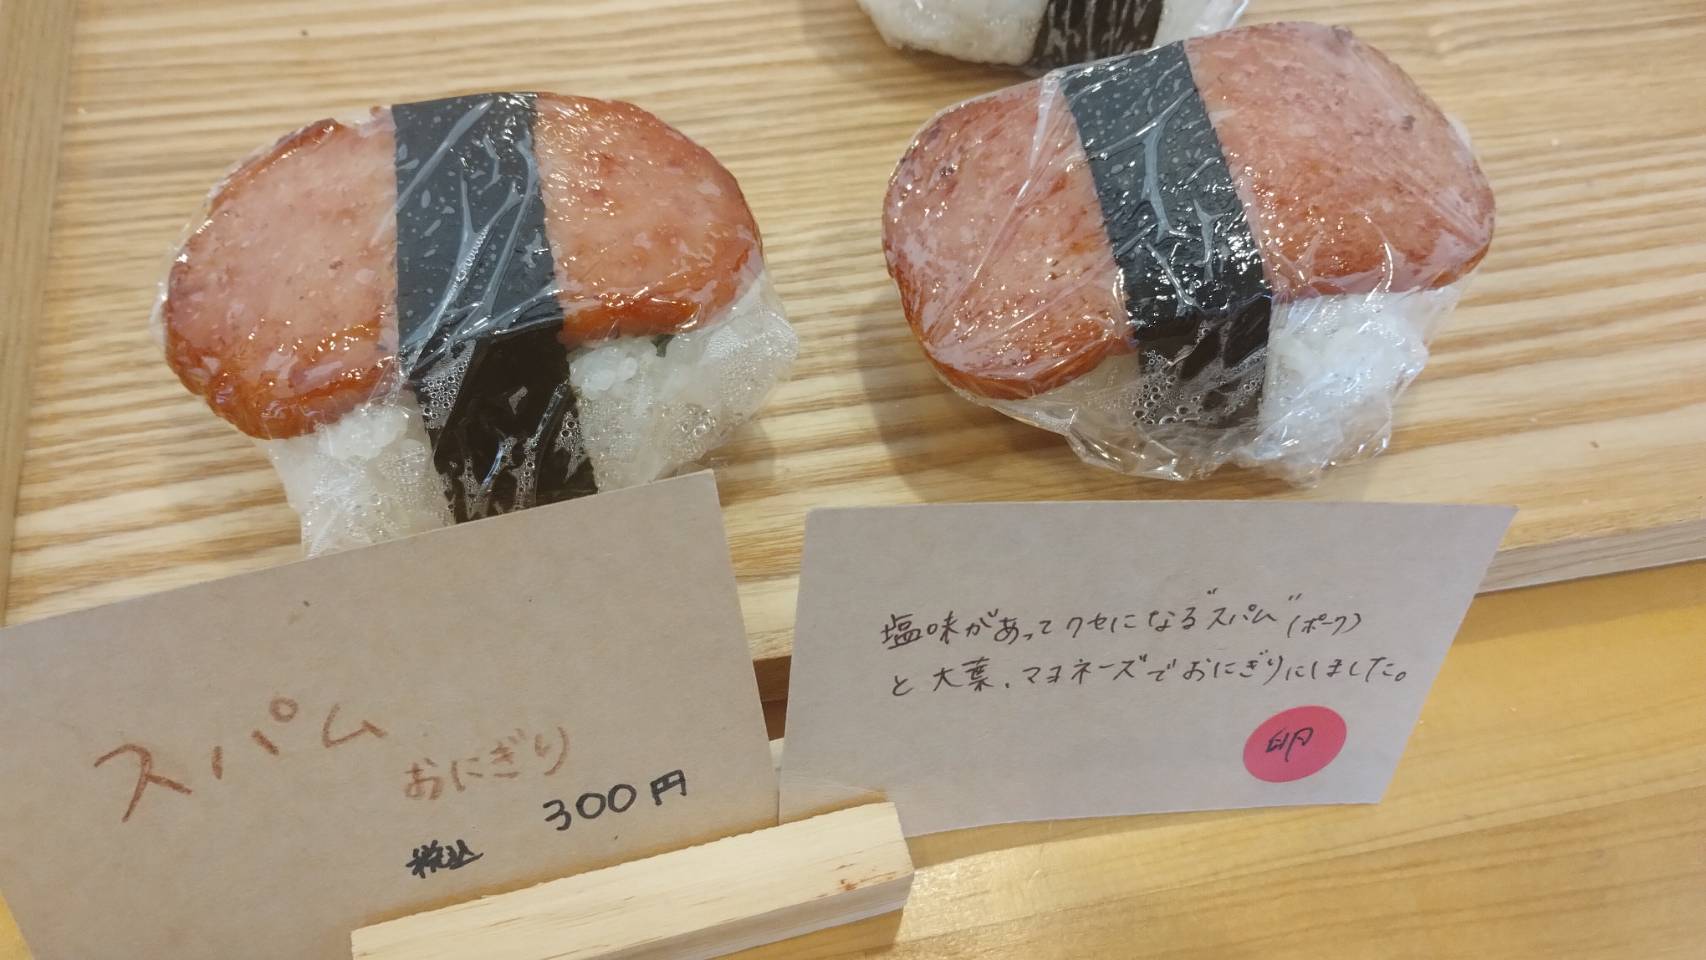 スパム
おにぎり
300円
税込
塩味があってクセになる"スパム"(ポーク)
と大葉、マヨネーズでおにぎりにしました。
卵